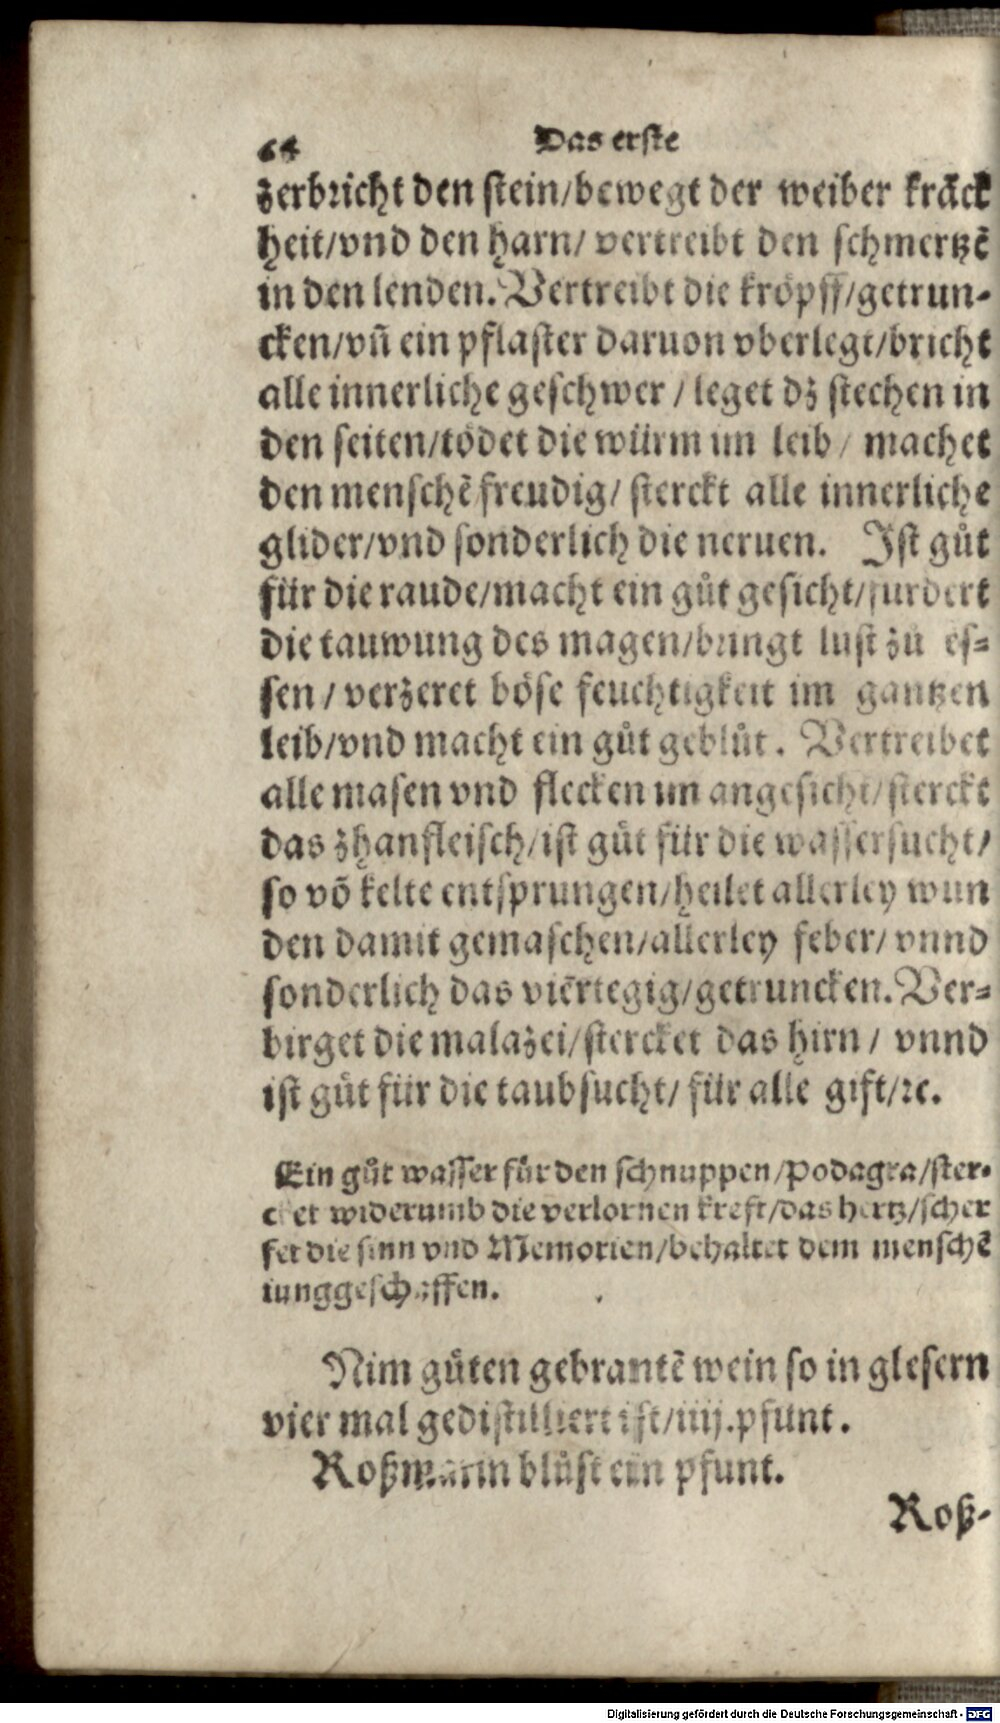 64 Das erste
zerbricht den stein/bewegt der weiber krãck
heit/vnd den harn/ vertreibt den schmertzẽ
in den lenden. Vertreibt die kröpff/getrun-
cken/vñ ein pflaster daruon vberlegt/bricht
alle innerliche geschwer / leget dz stechen in
den seiten/tödet die würm im leib / machet
den menschẽ freudig/ sterckt alle innerliche
glider/vnd sonderlich die neruen. Ist gůt
für die raude/macht ein gůt gesicht/furdert
die tauwung des magen/bringt lust zů es-
sen / verzeret böse feuchtigkeit im gantzen
leib/vnd macht ein gůt geblůt. Vertreibet
alle masen vnd flecken im angesicht/sterckt
das zhanfleisch/ist gůt für die wassersucht/
so võ kelte entsprungen/heilet allerley wun
den damit gemaschen/allerley feber/ vnnd
sonderlich das viẽrtegig/getruncken. Ver-
birget die malazei/stercket das hirn / vnnd
ist gůt für die taubsucht/ für alle gift/ꝛc.
Ein gůt wasser für den schnuppen/Podagra/ster-
cket widerumb die verlornen kreft/das hertz/scher
fet die sinn vnd Memorien/behaltet dem menschẽ
iunggeschaffen.
Nim gůten gebrantẽ wein so in glesern
vier mal gedistilliert ist/iiij.pfunt.
Roßmarin blůst ein pfunt.
Roß-
Digitalisierung gefördert durch die Deutsche Forschungsgemeinschaft - DFG